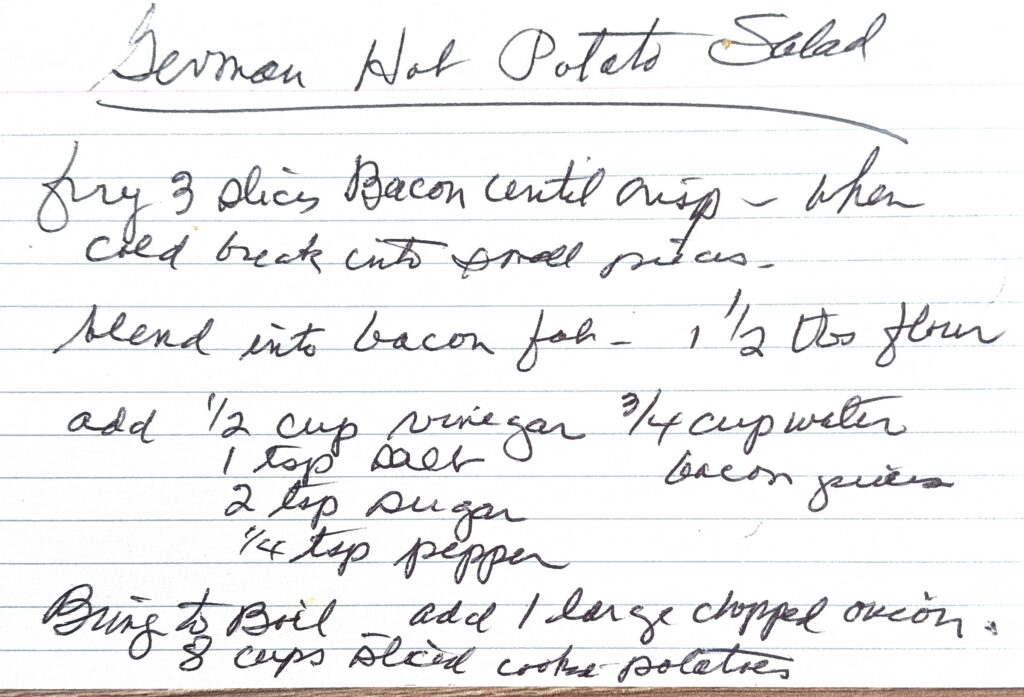 German Hot Potato Salad
fry 3 slices Bacon until crisp - when
cold break into small pieces -
blend into bacon fat - 1 1/2 tbs flour
add 1/2 cup vinegar 3/4 cup water
1 tsp salt bacon pieces
2 tsp sugar
1/4 tsp pepper
Bring to Boil - add 1 large chopped onion.
8 cups sliced potatoes